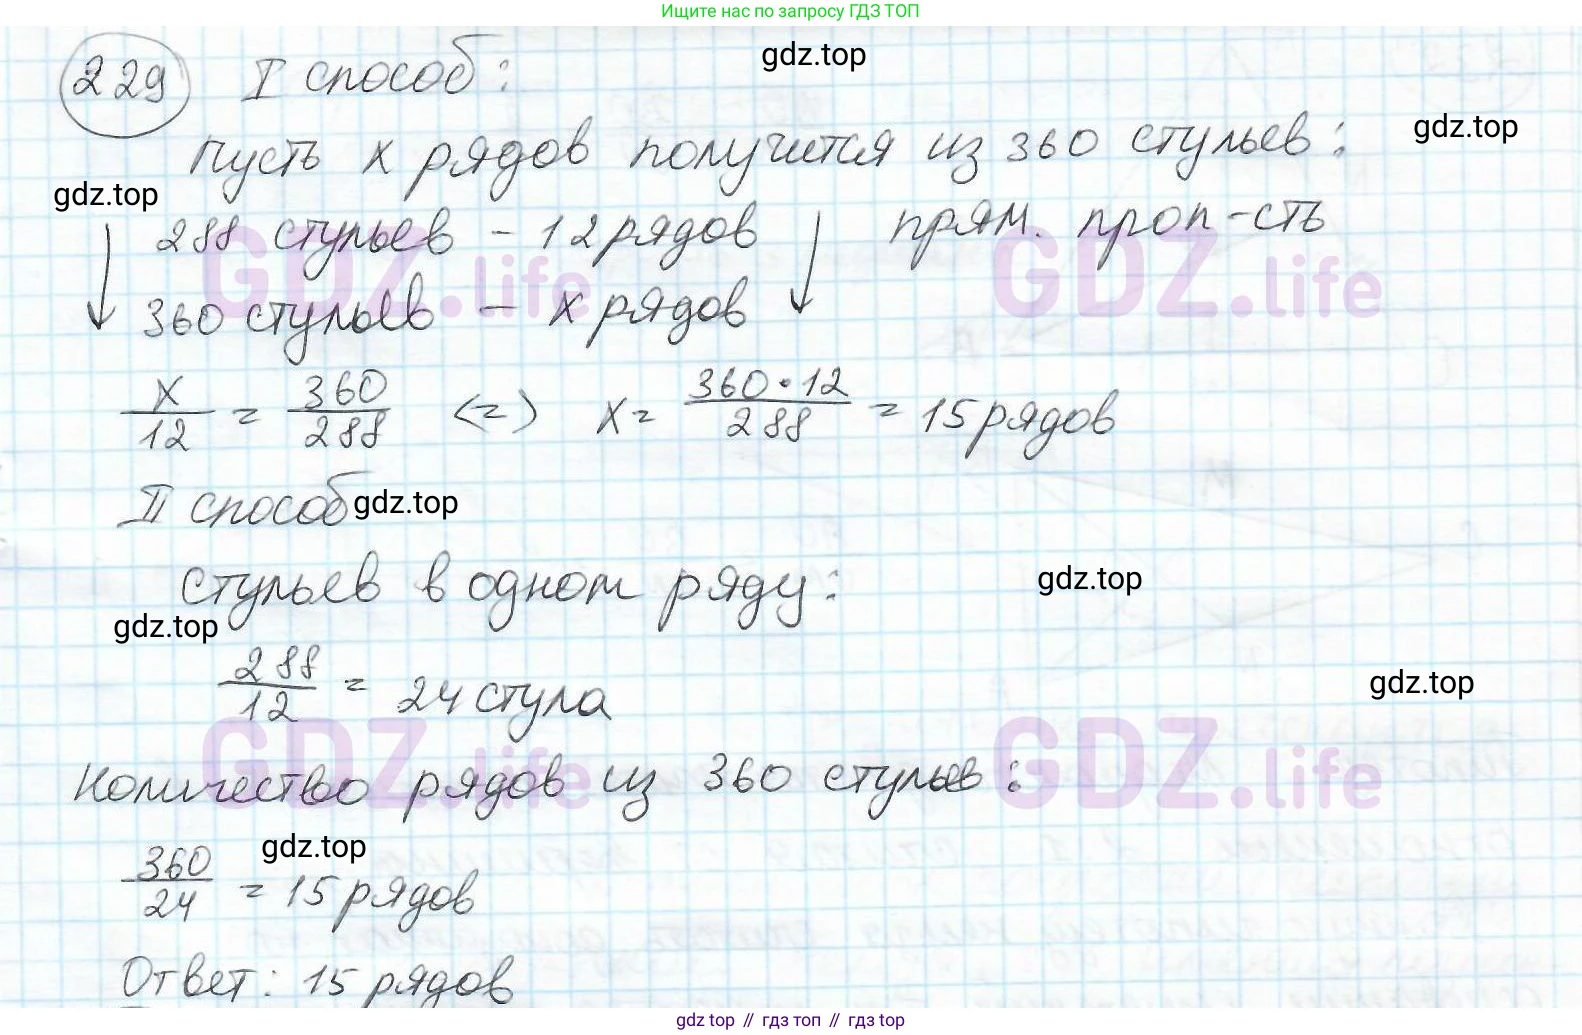 Ищите нас по запросу ГДЗ ТОП
229 I способ:
gdz.top
Пусть x рядов получится из 360 стульев:
gdz.top
gdz.top
288 стульев - 12 рядов прям. проп-сть
GDZ.life GDZ.life
360 стульев - x рядов
x/12 = 360/288 <=> x = 360·12/288 = 15 рядов
II способ
gdz.top
стульев в одном ряду:
gdz.top
gdz.top
288/12 = 24 стула
gdz.top
GDZ.life GDZ.life
Количество рядов из 360 стульев:
gdz.top
360/24 = 15 рядов
Ответ: 15 рядов
gdz top // гдз топ // gdz top